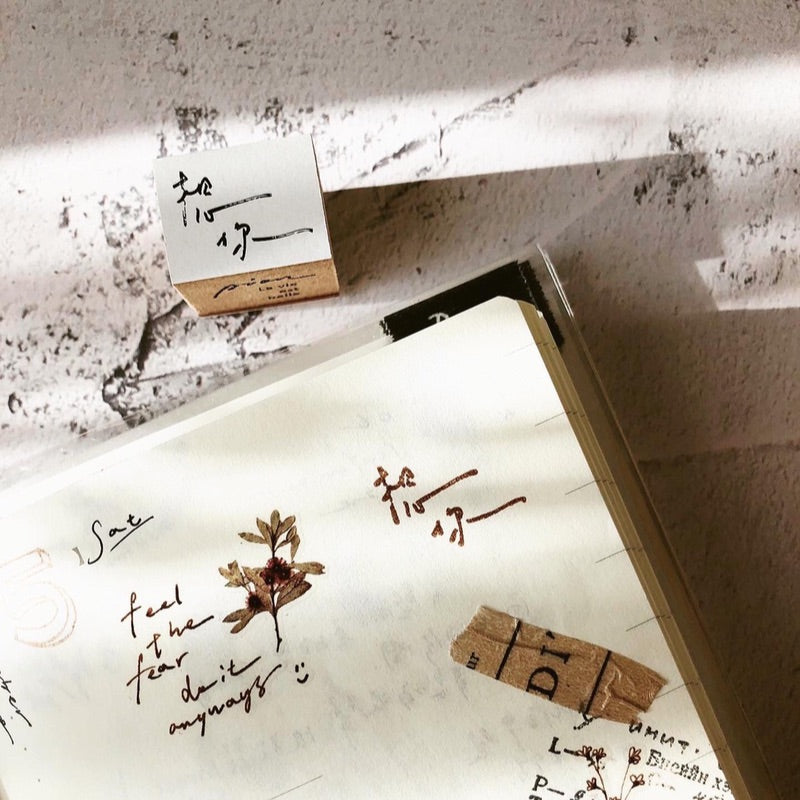 想
你
pion
La vie
est
belle
想
你
Sat
feel
the
fear
do it
anyways
DI
инит.
L—
Бисийн хэ
P—